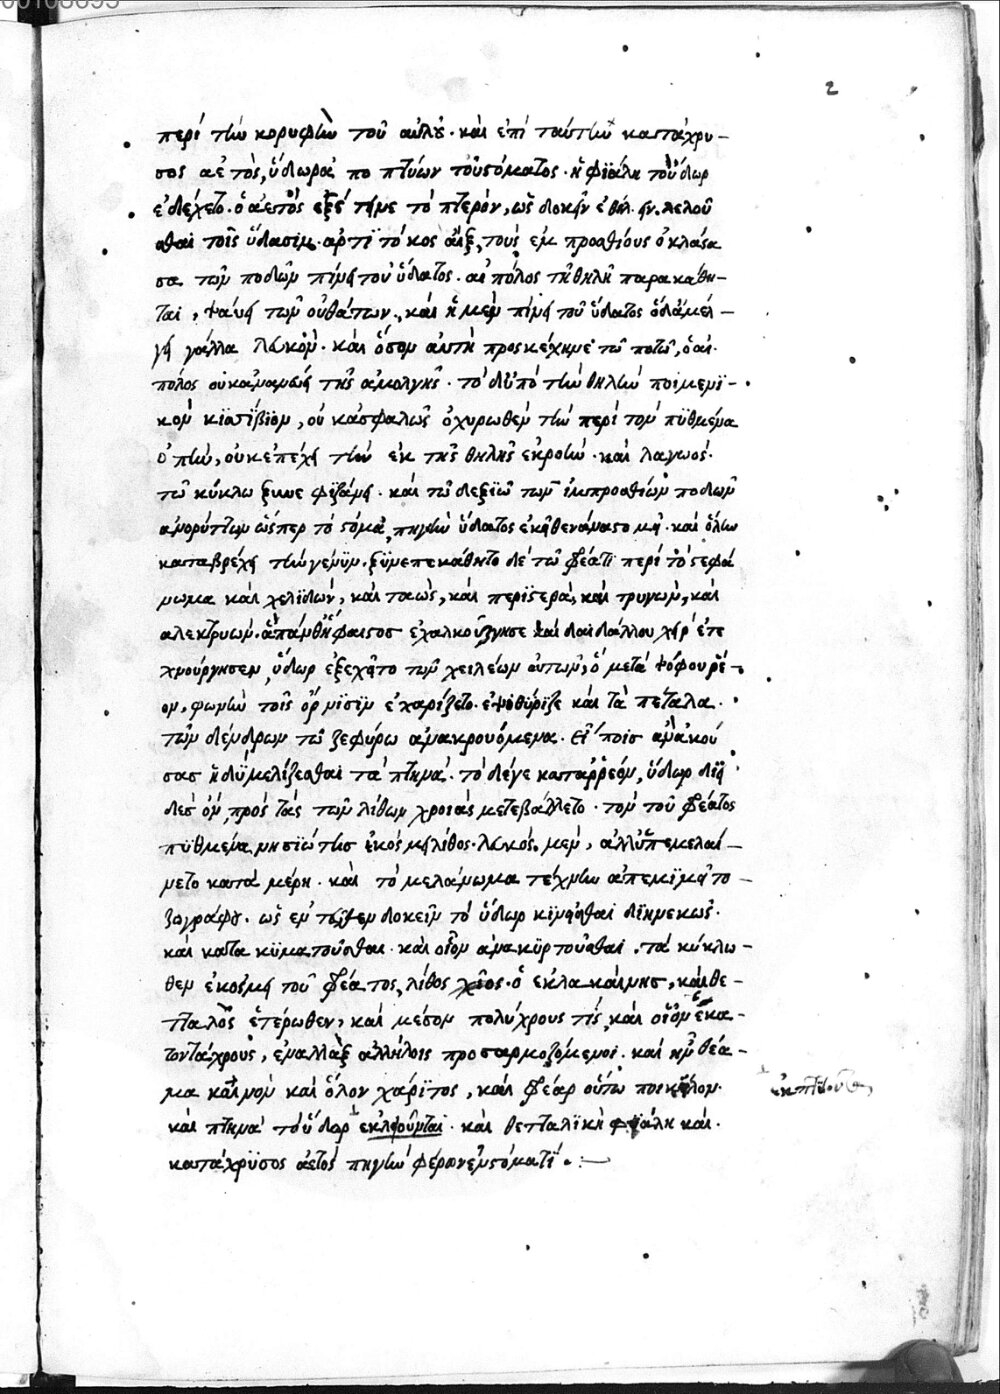 2
περί τὴν κορυφὴν τοῦ αὐλοῦ· καὶ ἐπὶ ταύτην κατάχρυ-
σος ἀετὸς, ὕδωρ ἀποπτύων τοῦ στόματος· ἡ φιάλη τοῦδωρ
ἐδέχετο· ὁ ἀετὸς ἐξέτεινε τὸ πτερὸν, ὡς δοκεῖν ἐθέλειν λελοῦ
σθαι τοῖς ὕδασιν· ἀρτίτοκος αἴξ, τοὺς ἐμπροσθίους ὀκλάσα
σα τῶν ποδῶν πίνει τοῦ ὕδατος· αἰπόλος τῇ θηλῇ παρακάθη-
ται, ψαύει τῶν οὐθάτων, καὶ ἡ μὲν πίνει τοῦ ὕδατος ὁ δ' ἀμέλ-
γει γάλα λευκὸν· καὶ ὅσον αὐτὴ προσκέχηνε τῶ ποτῶ, ὁ αἰ-
πόλος οὐκ ἀνανεύει τῆς ἀμολγῆς· τὸ δ' ὑπὸ τὴν θηλὴν ποιμενι-
κὸν κισσίβιον, οὐκ ἀσφαλῶς ὀχυρωθὲν τὴν περὶ τὸν πυθμένα
ὀπὴν, οὐκ ἐπέχει τὴν ἐκ τῆς θηλῆς ἐκροὴν· καὶ λαγωός·
τῶ κύκλω ξυνεφιζάνει· καὶ τῶ δεξιῶ τῶν ἐμπροσθίων ποδῶν
ἀνορύττων ὥσπερ τὸ στόμα, πηγὴν ὕδατος ἐκεῖθεν ἀναστομεῖ· καὶ ὅλην
καταβρέχει τὴν γένυν· ξυνεπεκάθητο δὲ τῶ φρέατι περὶ τὸ στεφά
νωμα καὶ χελιδών, καὶ ταὼς, καὶ περιστερὰ, καὶ τρυγὼν, καὶ
ἀλεκτρυών· ἃ πάνθ' Ἥφαιστος ἐχαλκούργησε καὶ δαιδάλλου χεὶρ ἐτε
χνούργησεν, ὕδωρ ἐξεχεῖτο τῶν χειλέων αὐτῶν, ὃ μετὰ ψόφου ῥέ-
ον, φωνὴν τοῖς ὄρνισιν ἐχαρίζετο· ἐψιθύριζε καὶ τὰ πέταλα
τῶν δένδρων τῶ ζεφύρω ἀνακρουόμενα· εἶπες ἂν ἀκού
σας ἡδὺ μελίζεσθαι τὰ πτηνὰ· τὸ δέ γε καταρρέον, ὕδωρ διει
δὲς ὂν, πρὸς τὰς τῶν λίθων χροιὰς μετεβάλλετο· τὸν τοῦ φρέατος
πυθμένα νησιώτης ἐκόσμει λίθος· λευκὸς μὲν, ἀλλ' ὑπεμελαί-
νετο κατὰ μέρη· καὶ τὸ μελάνωμα τέχνην ἀπεμιμεῖτο
ζωγράφου· ὡς ἐντεῦθεν δοκεῖν τὸ ὕδωρ κινεῖσθαι διηνεκῶς·
καὶ κατακυματοῦσθαι· καὶ οἷον ἀνακυρτοῦσθαι· τὰ κύκλω-
θεν ἐκόσμει τοῦ φρέατος, λίθος χῖος· ὁ ἐκ λακαίνης, καὶ θε-
τταλὸς ἑτέρωθεν, καὶ μέσον πολύχρους τίς, καὶ οἷον ἑκα-
τοντάχρους, ἐναλλὰξ ἀλλήλοις προσαρμοζόμενοι· καὶ ἦν θέα-
μα καινὸν καὶ ὅλον χάριτος, καὶ φρέαρ οὕτω ποικίλον·
καὶ πτηνὰ τὸ ὕδωρ ἐκλφοῦνται· καὶ θετταλικὴ φιάλη καὶ
κατάχρυσος ἀετὸς πηγὴν φέρων ἐν στόματι·